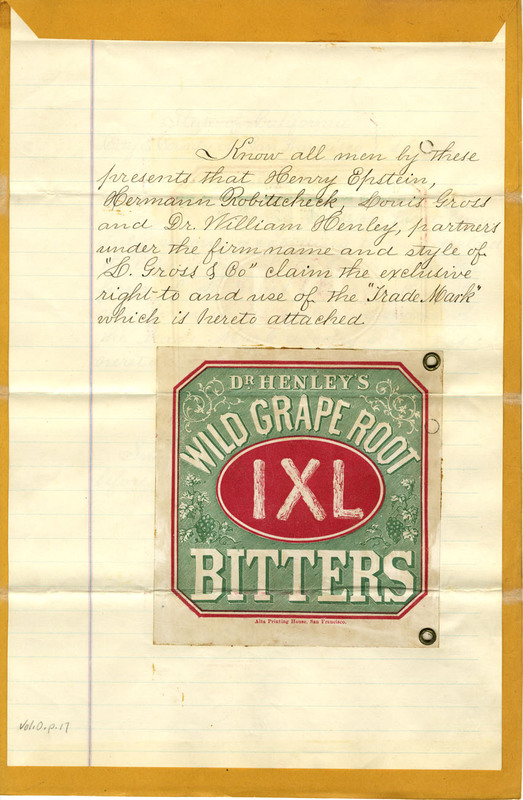 Know all men by these
presents that Henry Epstein,
Hermann Robitscheck, Louis Gross
and Dr. William Henley, partners
under the firm name and style of
"L. Gross & Co" claim the exclusive
right to and use of the "Trade Mark"
which is hereto attached.
DR HENLEY'S
WILD GRAPE ROOT
IXL
BITTERS
Alta Printing House, San Francisco.
Vol. O. p. 17